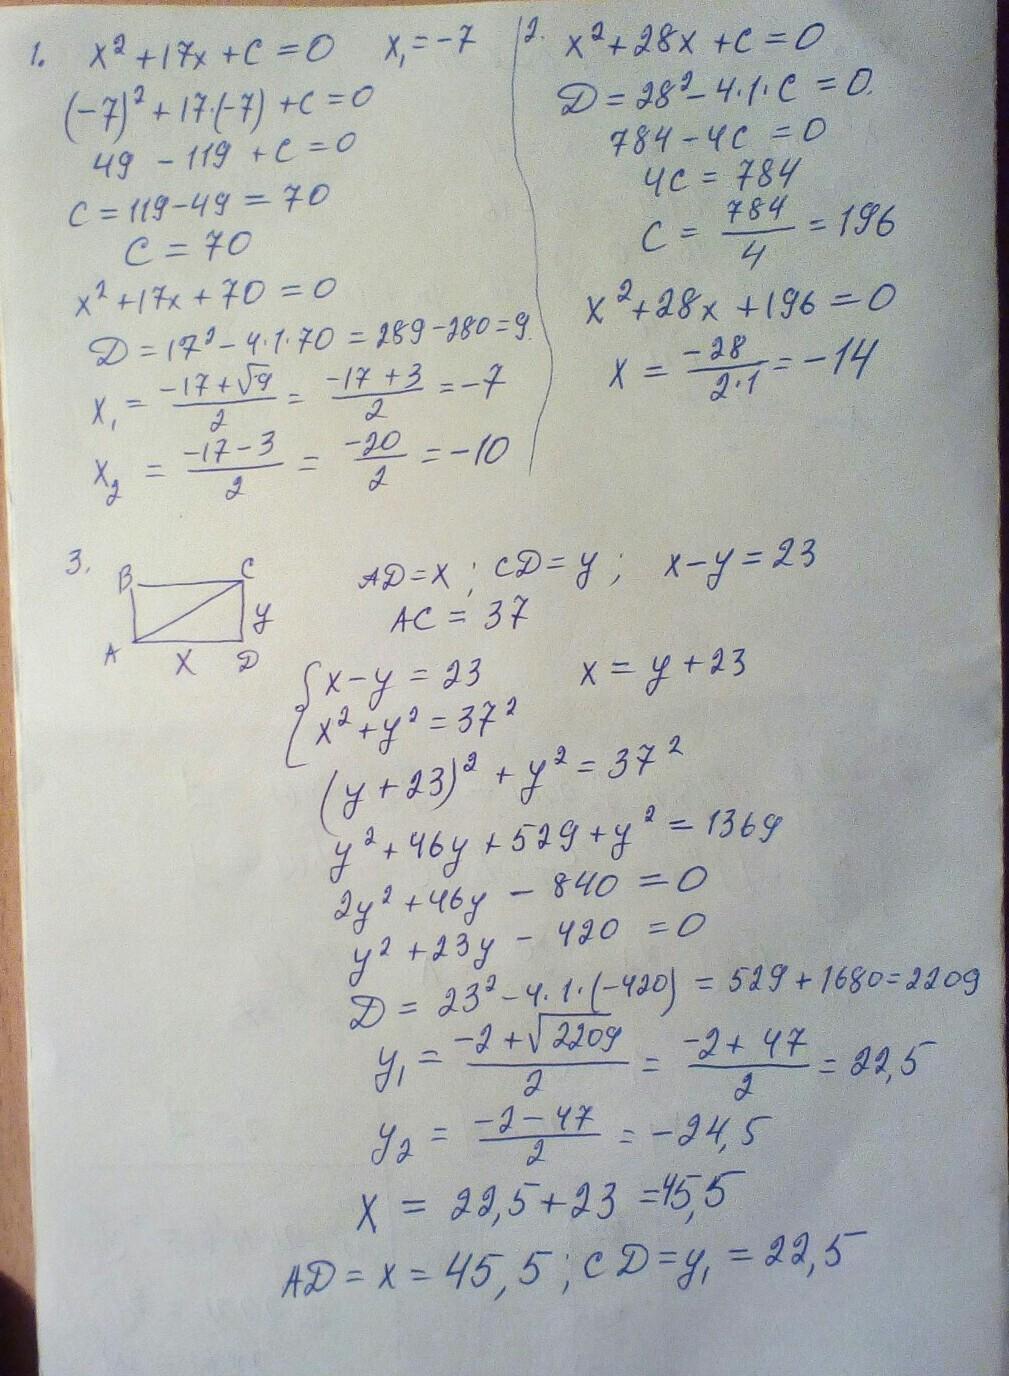 1. x² + 17x + C = 0   x₁ = -7
(-7)² + 17·(-7) + C = 0
49 - 119 + C = 0
C = 119 - 49 = 70
C = 70
x² + 17x + 70 = 0
D = 17² - 4·1·70 = 289 - 280 = 9.
x₁ = (-17 + √9)/2 = (-17 + 3)/2 = -7
x₂ = (-17 - 3)/2 = -20/2 = -10
2. x² + 28x + C = 0
D = 28² - 4·1·C = 0.
784 - 4C = 0
4C = 784
C = 784/4 = 196
x² + 28x + 196 = 0
x = -28/(2·1) = -14
3.
B C
y
A x D
AD = x ; CD = y ; x - y = 23
AC = 37
{ x - y = 23   x = y + 23
x² + y² = 37²
(y + 23)² + y² = 37²
y² + 46y + 529 + y² = 1369
2y² + 46y - 840 = 0
y² + 23y - 420 = 0
D = 23² - 4·1·(-420) = 529 + 1680 = 2209
y₁ = (-2 + √2209)/2 = (-2 + 47)/2 = 22,5
y₂ = (-2 - 47)/2 = -24,5
x = 22,5 + 23 = 45,5
AD = x = 45,5 ; CD = y₁ = 22,5